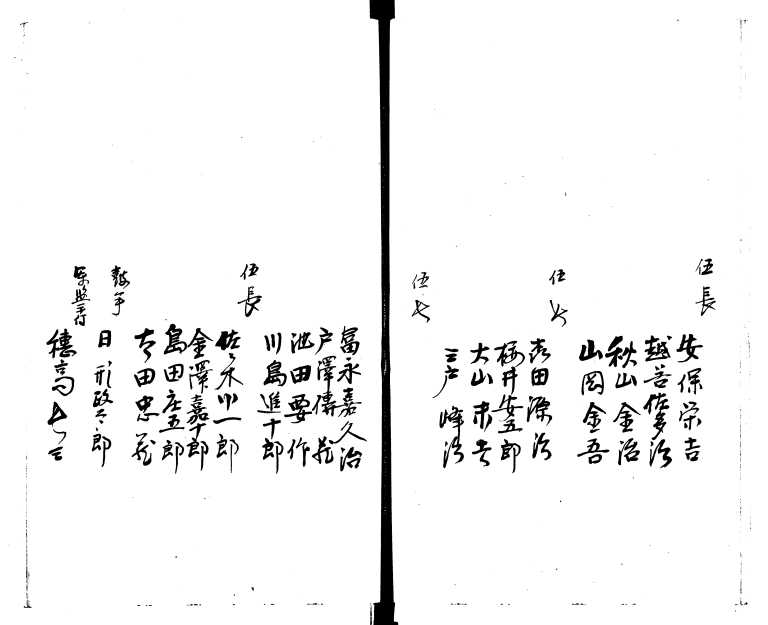 伍長
安保栄吉
越善佐多治
秋山金治
山岡金吾
伍長
森田源治
桜井安五郎
大山末吉
伍長
三戸峰治
冨永嘉久治
戸澤傳蔵
池田要作
川島進十郎
伍長
佐々木小一郎
金澤嘉十郎
島田庄五郎
太田忠蔵
鼓手
日形政太郎
穂高七三